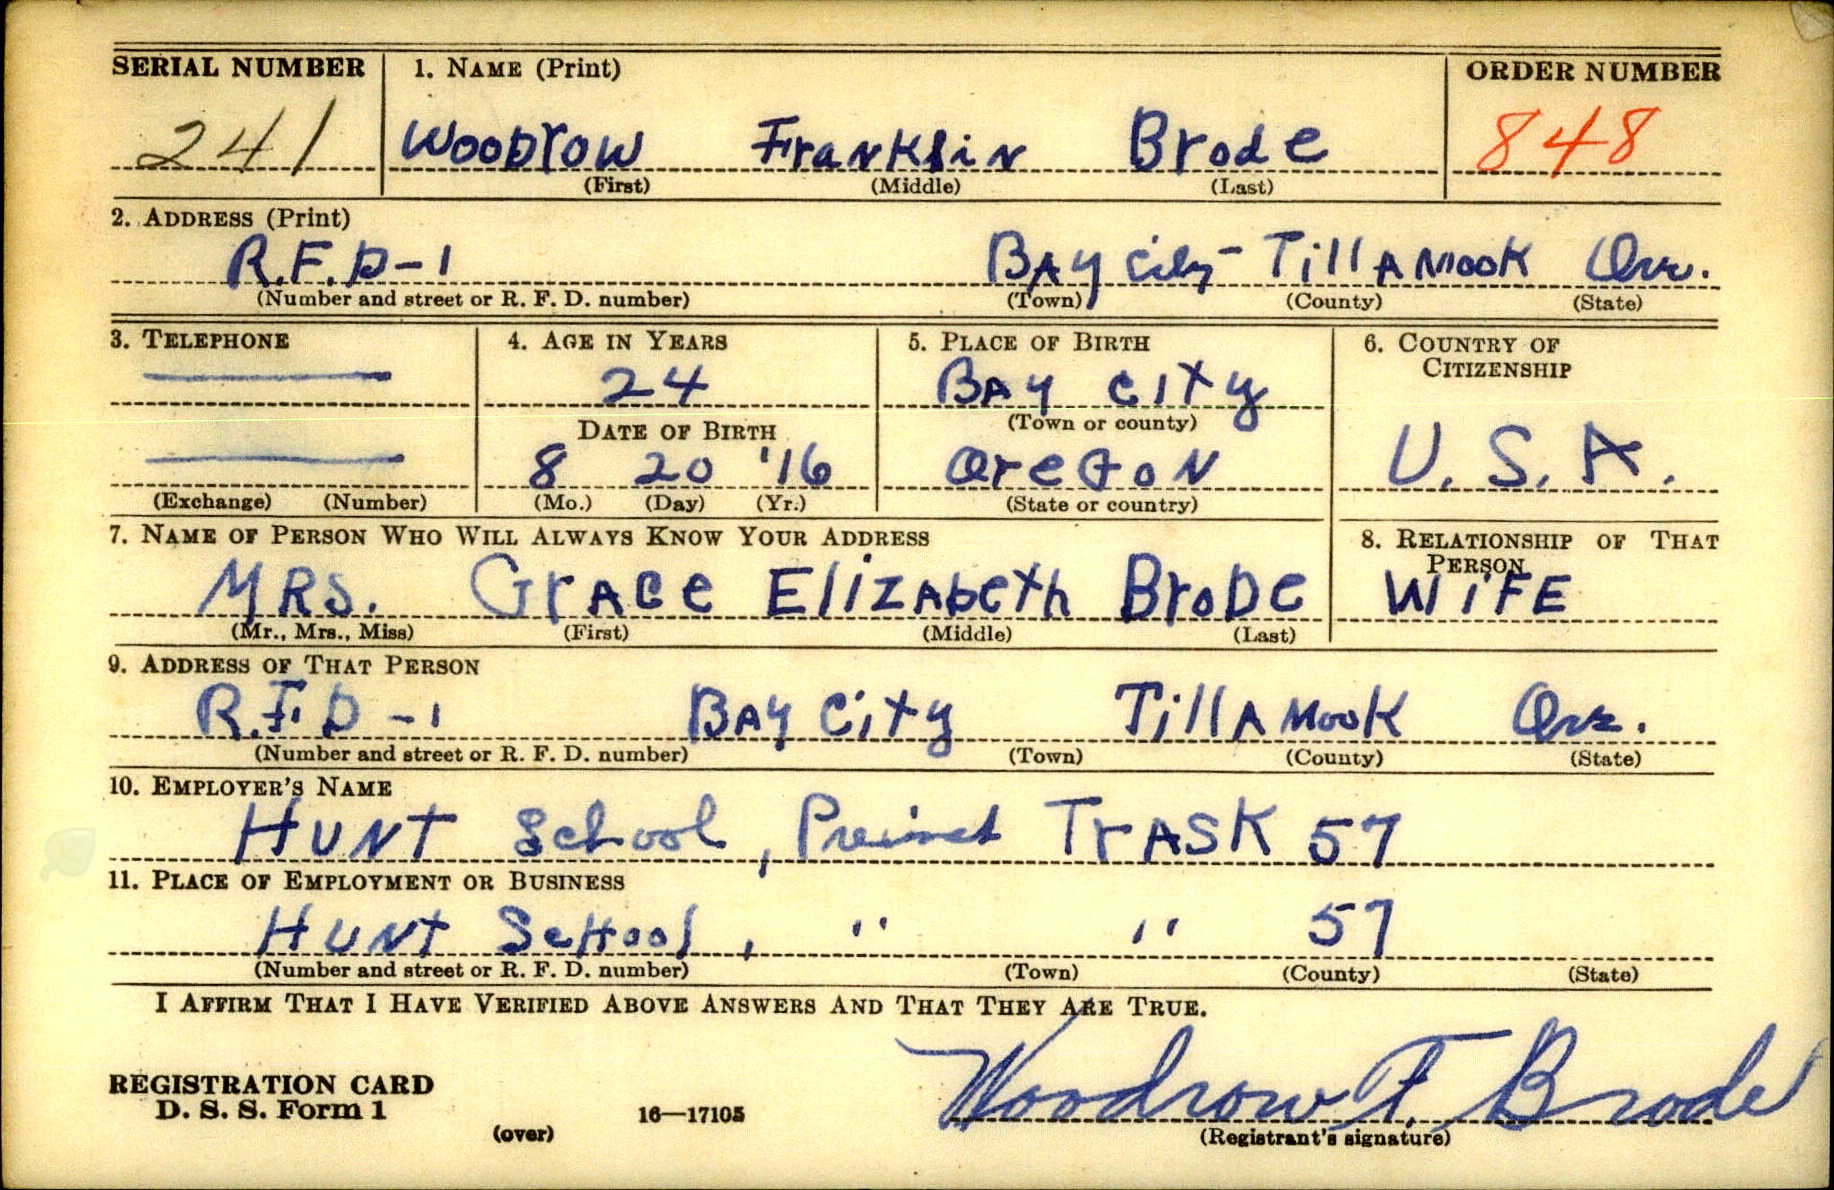 SERIAL NUMBER 1. NAME (Print) ORDER NUMBER
241 WOODrOW Franklin Brode 848
(First) (Middle) (Last)
2. ADDRESS (Print)
R.F.D-1 BAY City- TillAMOOK Ore.
(Number and street or R. F. D. number) (Town) (County) (State)
3. TELEPHONE 4. AGE IN YEARS 5. PLACE OF BIRTH 6. COUNTRY OF
CITIZENSHIP
24 BAY CITY
DATE OF BIRTH (Town or county)
8 20 '16 OreGoN U. S. A.
(Exchange) (Number) (Mo.) (Day) (Yr.) (State or country)
7. NAME OF PERSON WHO WILL ALWAYS KNOW YOUR ADDRESS 8. RELATIONSHIP OF THAT
PERSON
MRS. GrACe ElizAbeth BroDe WiFE
(Mr., Mrs., Miss) (First) (Middle) (Last)
9. ADDRESS OF THAT PERSON
R.F.D-1 BAY City TillAMook Ore.
(Number and street or R. F. D. number) (Town) (County) (State)
10. EMPLOYER'S NAME
HUNT School, Precinct TrASK 57
11. PLACE OF EMPLOYMENT OR BUSINESS
HUNT ScHool, " " 57
(Number and street or R. F. D. number) (Town) (County) (State)
I AFFIRM THAT I HAVE VERIFIED ABOVE ANSWERS AND THAT THEY ARE TRUE.
REGISTRATION CARD
D. S. S. Form 1 16—17105 Woodrow F. Brode
(over) (Registrant's signature)